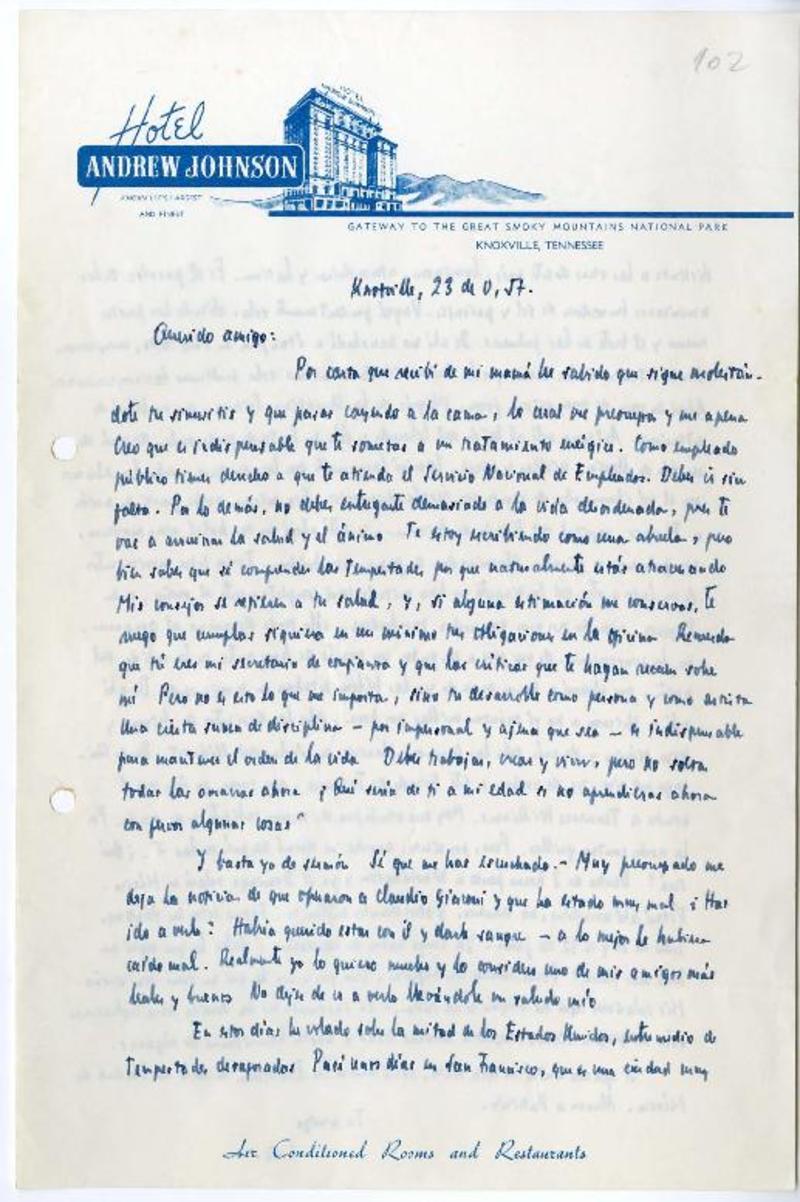 102
Hotel
ANDREW JOHNSON
HOTEL
ANDREW JOHNSON
KNOXVILLE'S LARGEST
AND FINEST
GATEWAY TO THE GREAT SMOKY MOUNTAINS NATIONAL PARK
KNOXVILLE, TENNESSEE
Knoxville, 23 de O, 57.
Querido amigo:
Por carta que recibí de mi mamá he sabido que sigue molestán-
dote tu sinusitis y que pasas cayendo a la cama, lo cual me preocupa y me apena
Creo que es indispensable que te sometas a un tratamiento enérgico. Como empleado
público tienes derecho a que te atienda el Servicio Nacional de Empleados. Debes ir sin
falta. Por lo demás, no debes entregarte demasiado a la vida desordenada, pues te
vas a arruinar la salud y el ánimo. Te estoy escribiendo como una abuela, pero
bien sabes que sé comprender las tempestades por que naturalmente estás atravesando
Mis consejos se refieren a tu salud, y, si alguna estimación me conservas, te
ruego que cumplas siquiera en un mínimo tus obligaciones en la oficina. Recuerda
que tú eres mi secretario de confianza y que las críticas que te hagan recaen sobre
mí. Pero no es esto lo que me importa, sino tu desarrollo como persona y como artista
Una cierta suma de disciplina – por impersonal y ajena que sea – es indispensable
para mantener el orden de la vida. Debes trabajar, crear y vivir, pero no soltar
todas las amarras ahora ¿Qué sería de ti a mi edad si no aprendieras ahora
con fervor algunas cosas?
Y basta ya de sermón. Sé que me has escuchado. – Muy preocupado me
deja la noticia de que operaron a Claudio Giaconi y que ha estado muy mal ¿Has
ido a verlo? Habría querido estar con él y darle sangre – a lo mejor le hubiera
caído mal. Realmente yo lo quiero mucho y lo considero uno de mis amigos más
leales y buenos. No dejes de ir a verlo llevándole un saludo mío
En estos días he volado sobre la mitad de los Estados Unidos, entremedio de
tempestades desaforadas. Pasé unos días en San Francisco, que es una ciudad muy
Air Conditioned Rooms and Restaurants